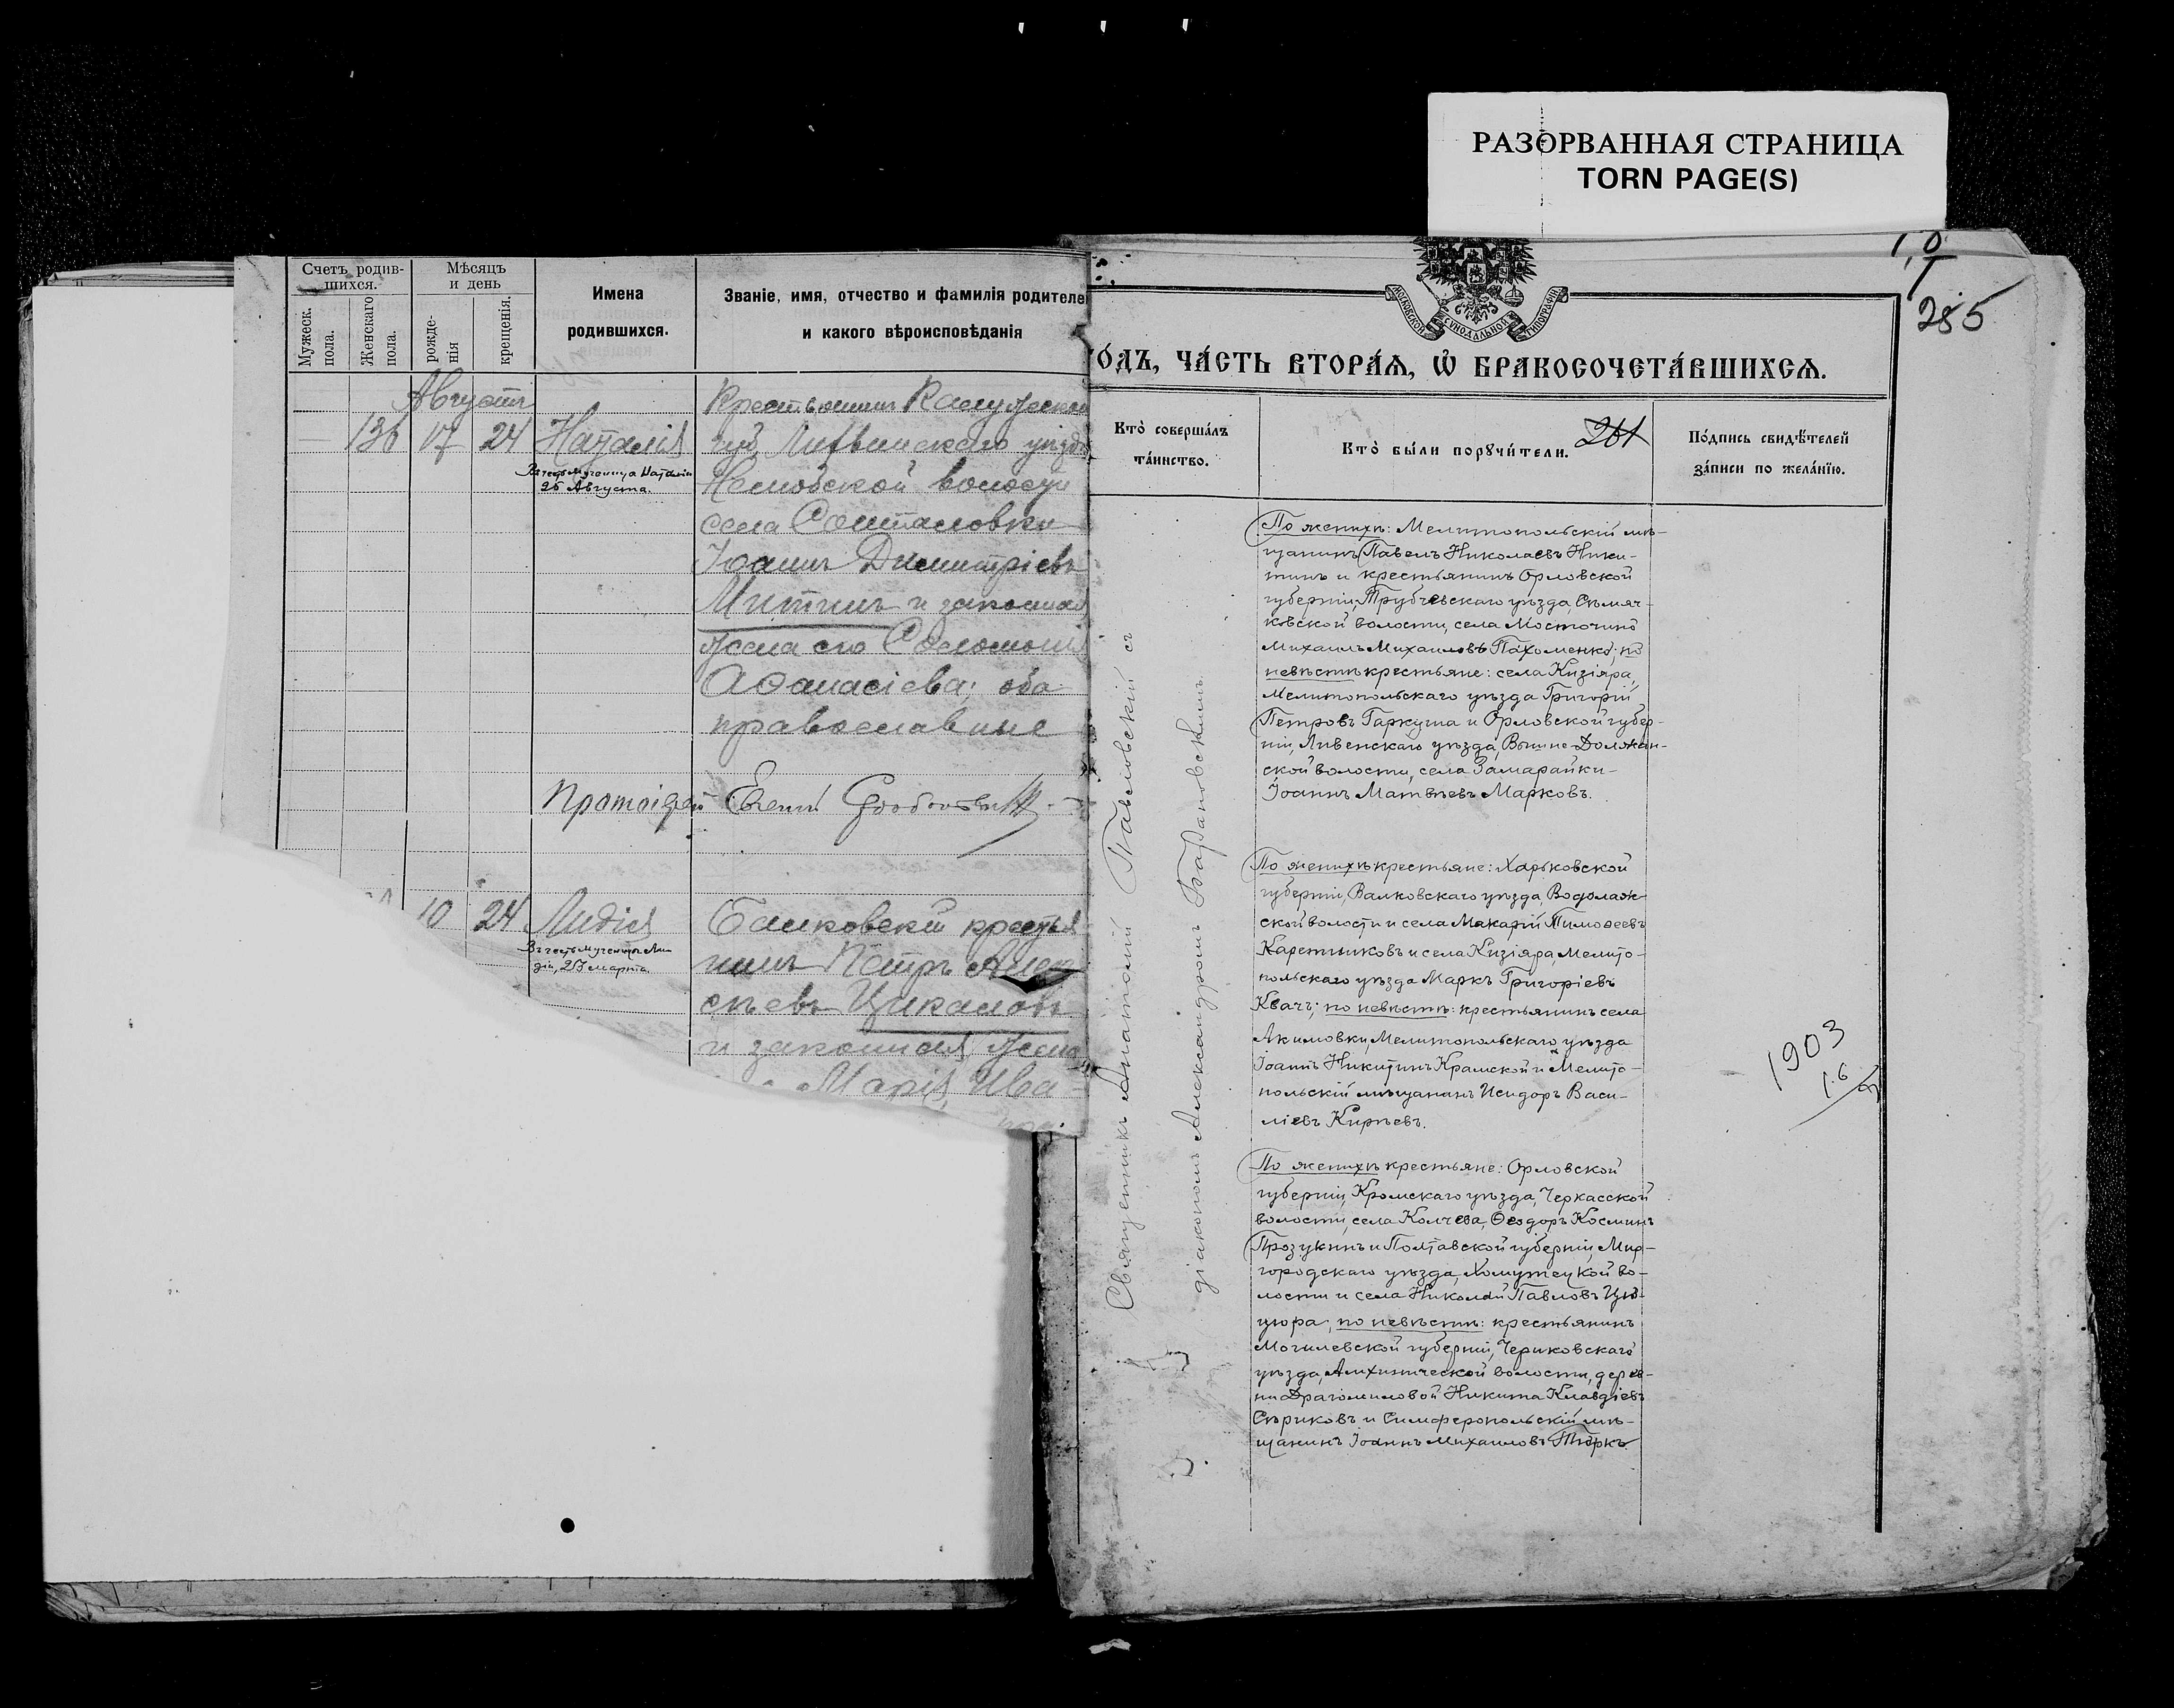 РАЗОРВАННАЯ СТРАНИЦА
TORN PAGE(S)
Счетъ родив-
шихся.
Мужеск.
пола.
Женскаго
пола.
Мѣсяцъ
и день
рожде-
нія
крещенія.
Имена
родившихся.
Званіе, имя, отчество и фамилія родителе
и какого вѣроисповѣданія
Августъ
136 17 24 Наталія
Въ честь мученицы Наталіи
26 Августа.
Крестьянинъ Калужской
губ. Лихвинскаго уѣзда
волости
села
Іоаннъ Димитріевъ
Митинъ и законная
жена его Соломонія
Аѳанасіева; оба
православные
Протоіерей Евгеній
10 24 Лидія
Въ честь мученицы Ли-
діи, 23 марта
крестья
нинъ Петръ Алек
сѣевъ Цикаловъ
и законная жена
Марія Ива-
1903
285
МОСКОВСКОЙ СѴНОДАЛЬНОЙ ТИПОГРАФІИ
ГО́ДЪ, ЧА́СТЬ ВТОРА́Ѧ, Ѽ БРАКОСОЧЕТА́ВШИХСѦ.
Кто̀ соверша́лъ
та́инство.
Кто̀ бы́ли порꙋчи́тели.
261
По́дпись свидѣ́телей
за́писи по жела́нїю.
Священникъ Анатолій Павловскій съ
діакономъ Александромъ Барановскимъ.
По женихѣ: Мелитопольскій мѣ-
щанинъ Павелъ Николаевъ Ники-
тинъ и крестьянинъ Орловской
губерніи, Трубчевскаго уѣзда, Сѣмяч-
ковской волости, села Мосточино
Михаилъ Михаиловъ Пахоменко; по
невѣстѣ крестьяне: села Кизіяра,
Мелитопольскаго уѣзда Григорій
Петровъ Гаркуша и Орловской губер-
ніи, Ливенскаго уѣзда, Вышне-Должан-
ской волости, села Замарайки-
Іоаннъ Матвѣевъ Марковъ.
По женихѣ крестьяне: Харьковской
губерніи, Валковскаго уѣзда, Водолаж-
ской волости и села Макарій Тимоѳеевъ
Каретниковъ и села Кизіяра, Мелито-
польскаго уѣзда Маркъ Григоріевъ
Квачъ; по невѣстѣ: крестьянинъ села
Акимовки, Мелитопольскаго уѣзда
Іоаннъ Никитинъ Крамской и Мелито-
польскій мѣщанинъ Исидоръ Васи-
ліевъ Кирѣевъ.
По женихѣ крестьяне: Орловской
губерніи, Кромскаго уѣзда, Черкасской
волости, села Колчева, Ѳеодоръ Косминъ
Прозукинъ и Полтавской губерніи, Мир-
городскаго уѣзда, Хомутецкой во-
лости и села Николай Павловъ Цю-
цюра; по невѣстѣ: крестьянинъ
Могилевской губерніи, Чериковскаго
уѣзда, Алихиничской волости, дерев-
ни Драгомиловой Никита Клавдіевъ
Сѣриковъ и Симферопольскій мѣ-
щанинъ Іоаннъ Михаиловъ Тюркъ.